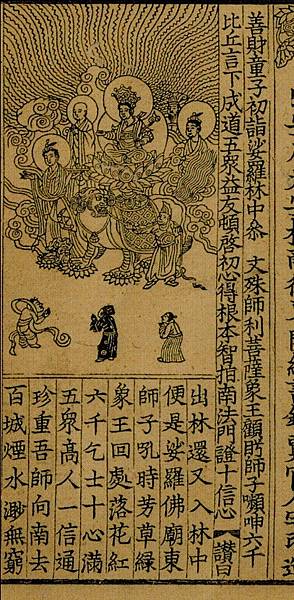 善財童子初詣娑羅林中叅 文殊師利菩薩象王顧眄師子嚬呻六千
比丘言下成道五衆益友頓啓初心得根本智指南法門證十信心【讚曰
出林還又入林中
便是娑羅佛廟東
師子吼時芳草綠
象王回處落花紅
六千乞士十心滿
五衆高人一信通
珍重吾師向南去
百城煙水渺無窮